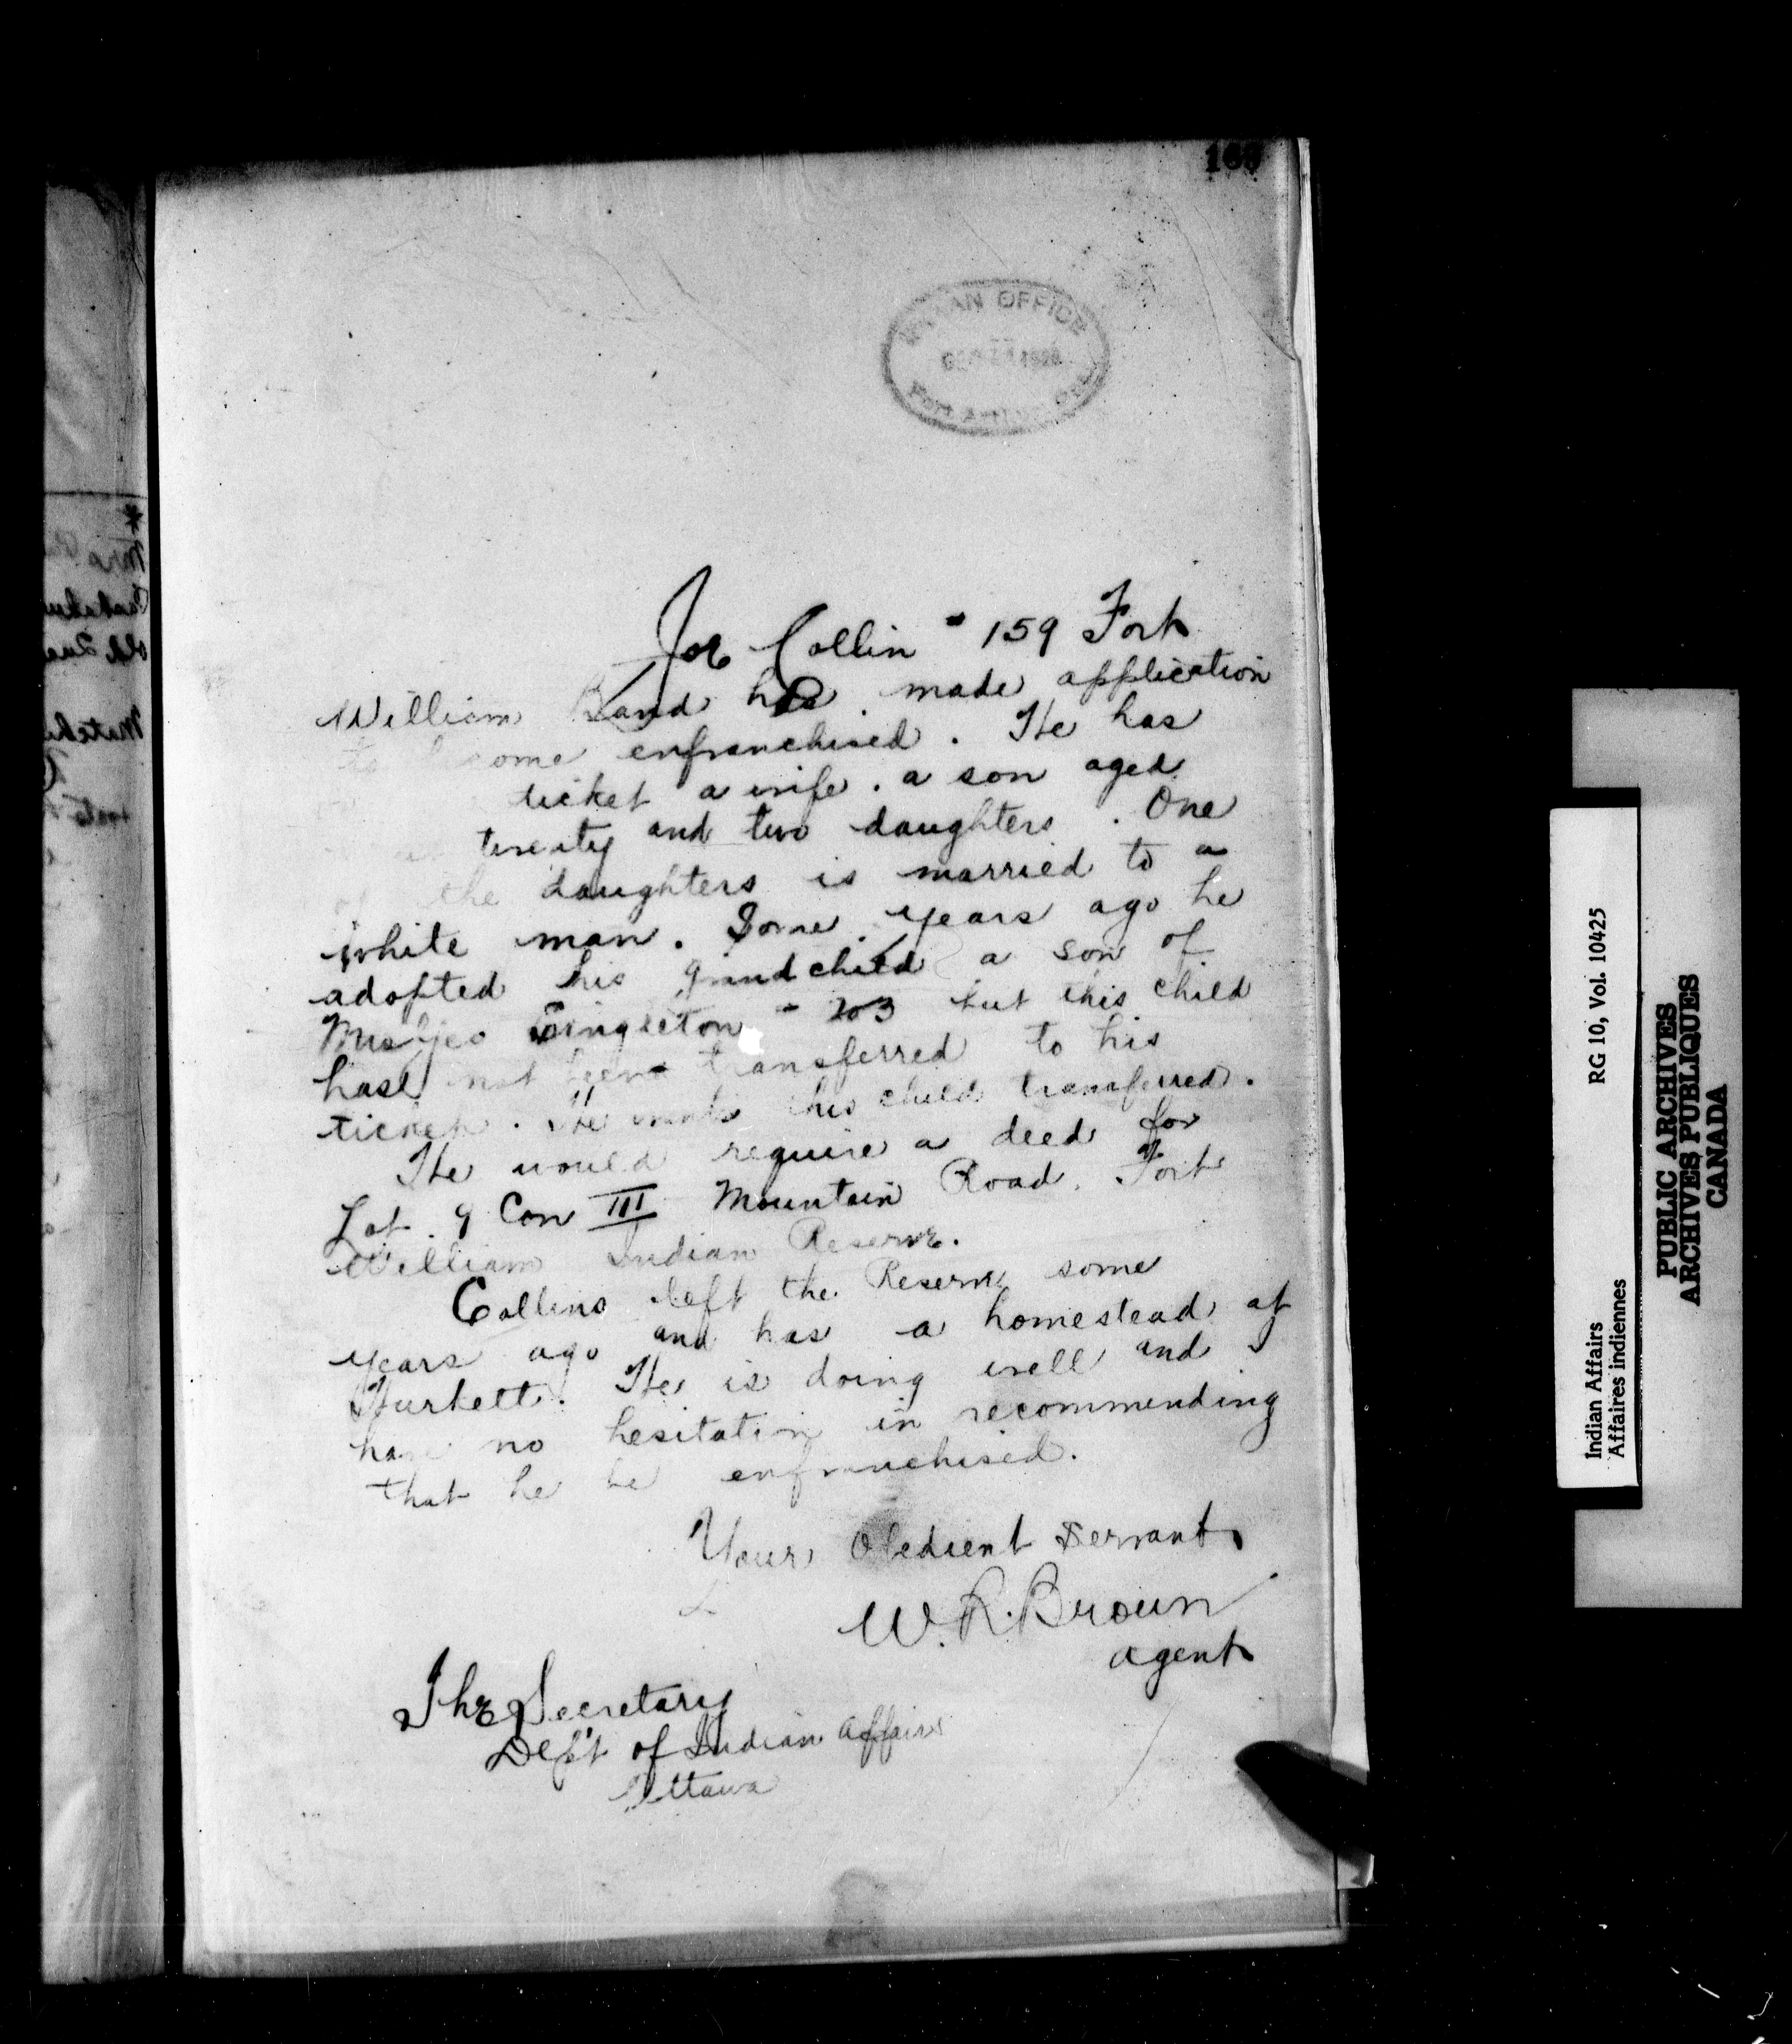 INDIAN OFFICE
Port Arthur, Ont.
Joe Collin # 159 Fort
William Band has made application
to become enfranchised. He has
ticket a wife. a son aged
twenty and two daughters. One
of the daughters is married to a
white man. Some years ago he
adopted his grandchild a son of
Mrs Geo Singleton # 203 but this child
has not been transferred to his
ticket. He wants this child transferred.
He would require a deed for
Lot 9 Con III Mountain Road. Fort
William Indian Reserve.
Collins left the Reserve some
years ago and has a homestead at
Hurkett. He is doing well and
have no hesitation in recommending
that he be enfranchised.
Your Obedient Servant
W. R. Brown
agent
The Secretary
Dep't of Indian Affairs
Ottawa
Indian Affairs RG 10, Vol. 10425
Affaires indiennes
PUBLIC ARCHIVES
ARCHIVES PUBLIQUES
CANADA